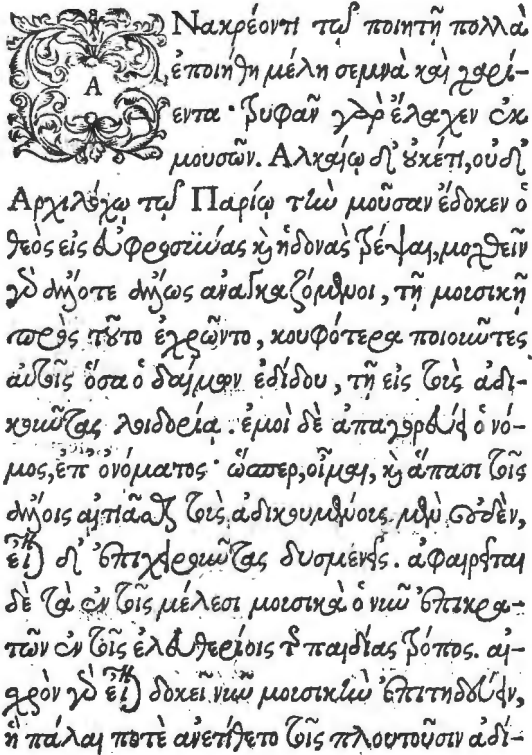 ΑΝακρέοντι τῷ ποιητῇ πολλὰ
ἐποιήθη μέλη σεμνὰ καὶ χαρί-
εντα· τρυφᾶν γὰρ ἔλαχεν ἐκ
μουσῶν. Ἀλκαίῳ δ' οὐκέτι, οὐδ'
Ἀρχιλόχῳ τῷ Παρίῳ τὴν μοῦσαν ἔδοκεν ὁ
θεὸς εἰς εὐφροσύνας καὶ ἡδονὰς τρέψαι, μολθεῖν
γὰρ ἄλλοτε ἄλλως ἀναγκαζόμενοι, τῇ μουσικῇ
πρὸς τοῦτο ἐχρῶντο, κουφότερα ποιοῦντες
αὑτοῖς ὅσα ὁ δαίμων ἐδίδου, τῇ εἰς τοὺς ἀδι-
κοῦντας λοιδορίᾳ. ἐμοὶ δὲ ἀπαγορεύει ὁ νό-
μος, ἐπ' ὀνόματος· ὥσπερ, οἶμαι, καὶ ἅπασι τοῖς
ἄλλοις αἰτιᾶσθαι τοὺς ἀδικουμένους μὲν οὐδὲν,
εἶναι δ' ἐπιχειροῦντας δυσμενεῖς. ἀφαιρεῖται
δὲ τὰ ἐν τοῖς μέλεσι μουσικὰ ὁ νῦν ἐπικρα-
τῶν ἐν τοῖς ἐλευθερίοις τῆς παιδίας τρόπος. αἰ-
χρὸν γὰρ εἶναι δοκεῖ νῦν μουσικὴν ἐπιτηδεύειν,
ἢ πάλαι ποτὲ ἀνετίθετο τοῖς πλουτοῦσιν ἀδί-